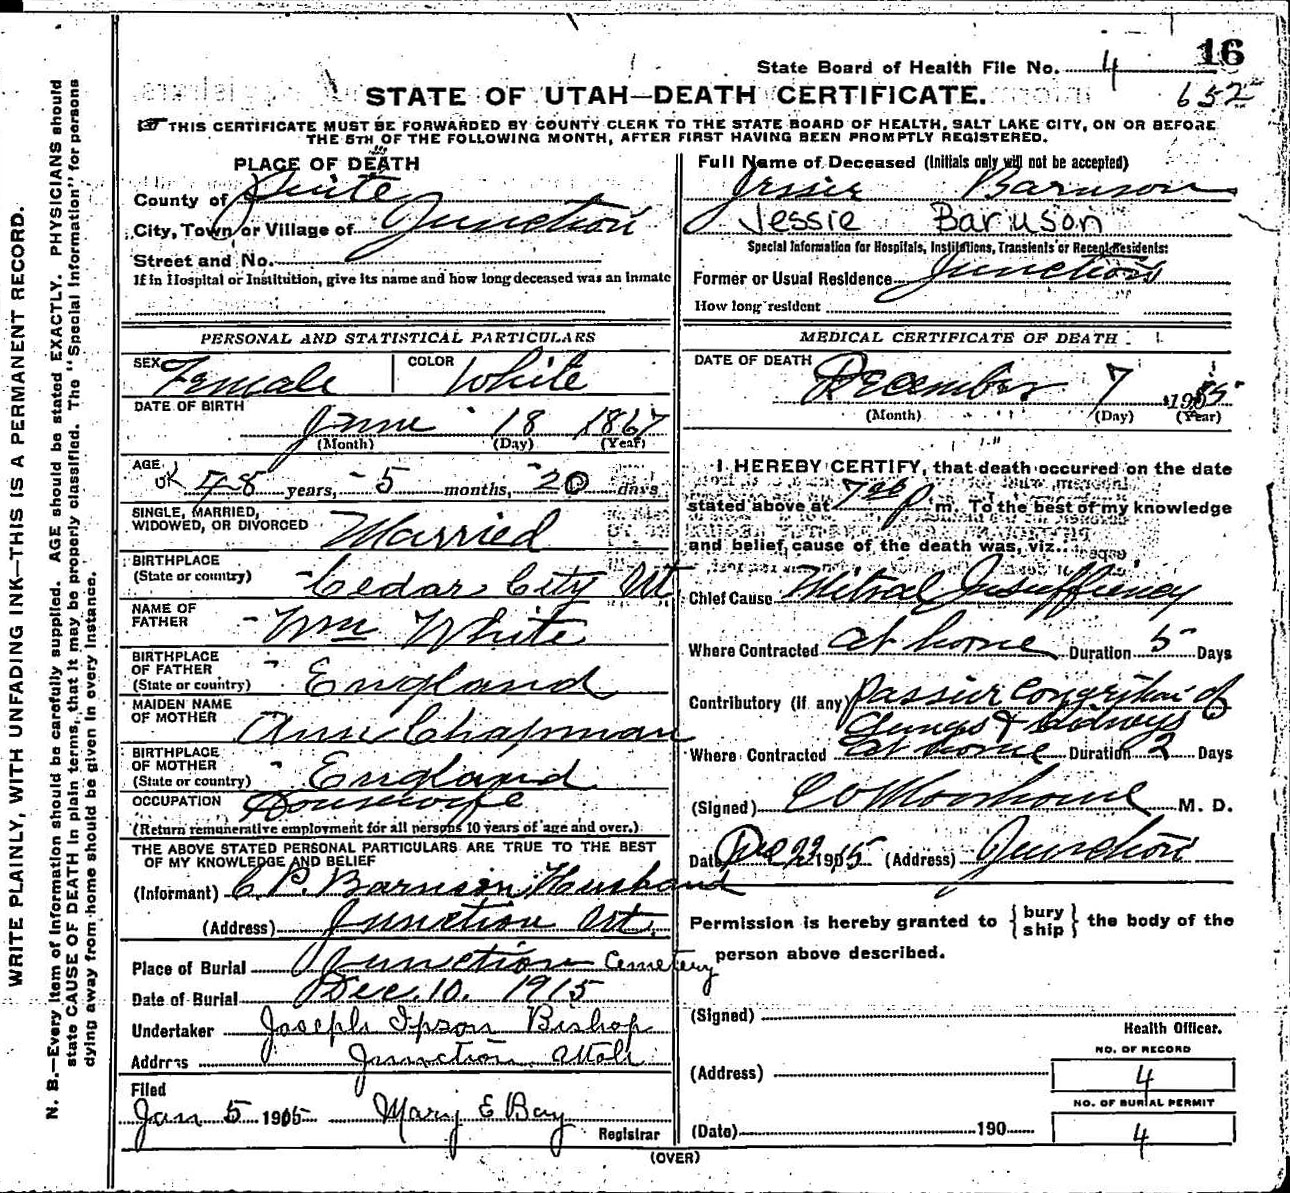 16
State Board of Health File No. 4
652
STATE OF UTAH—DEATH CERTIFICATE.
THIS CERTIFICATE MUST BE FORWARDED BY COUNTY CLERK TO THE STATE BOARD OF HEALTH, SALT LAKE CITY, ON OR BEFORE
THE 5TH OF THE FOLLOWING MONTH, AFTER FIRST HAVING BEEN PROMPTLY REGISTERED.
WRITE PLAINLY, WITH UNFADING INK—THIS IS A PERMANENT RECORD.
N. B.—Every item of information should be carefully supplied. AGE should be stated EXACTLY. PHYSICIANS should
state CAUSE OF DEATH in plain terms, that it may be properly classified. The "Special Information" for persons
dying away from home should be given in every instance.
PLACE OF DEATH
County of Piute
City, Town or Village of Junction
Street and No.
If in Hospital or Institution, give its name and how long deceased was an inmate
PERSONAL AND STATISTICAL PARTICULARS
SEX Female COLOR White
DATE OF BIRTH
June 18 1867
(Month) (Day) (Year)
AGE
OK 48 years, -5 months, -20 days
SINGLE, MARRIED,
WIDOWED, OR DIVORCED Married
BIRTHPLACE
(State or country) Cedar City Ut
NAME OF
FATHER Wm White
BIRTHPLACE
OF FATHER
(State or country) England
MAIDEN NAME
OF MOTHER Ann Chapman
BIRTHPLACE
OF MOTHER
(State or country) England
OCCUPATION Housewife
(Return remunerative employment for all persons 10 years of age and over.)
THE ABOVE STATED PERSONAL PARTICULARS ARE TRUE TO THE BEST
OF MY KNOWLEDGE AND BELIEF
(Informant) C. P. Baruson, Husband
(Address) Junction Ut.
Place of Burial Junction Cemetery
Date of Burial Dec. 10. 1915
Undertaker Joseph Ipson Bishop
Address Junction Utah
Filed
Jan 5 1915 Mary E Bay
Registrar
Full Name of Deceased (Initials only will not be accepted)
Jessie Baruson
Jessie Baruson
Special Information for Hospitals, Institutions, Transients or Recent Residents:
Former or Usual Residence Junction
How long resident
MEDICAL CERTIFICATE OF DEATH
DATE OF DEATH December 7 1915
(Month) (Day) (Year)
I HEREBY CERTIFY, that death occurred on the date
stated above at 7 p m. To the best of my knowledge
and belief, cause of the death was, viz.:
Chief Cause Mitral Insuffiency
Where Contracted at home Duration 5 Days
Contributory (if any) Passive Congestion of
Lungs & Kidneys
Where Contracted at home Duration 2 Days
(Signed) M. D.
Date Dec 22 1915 (Address) Junction
Permission is hereby granted to {bury ship} the body of the
person above described.
(Signed)
Health Officer.
NO. OF RECORD
(Address) 4
NO. OF BURIAL PERMIT
(Date) 190 4
(OVER)